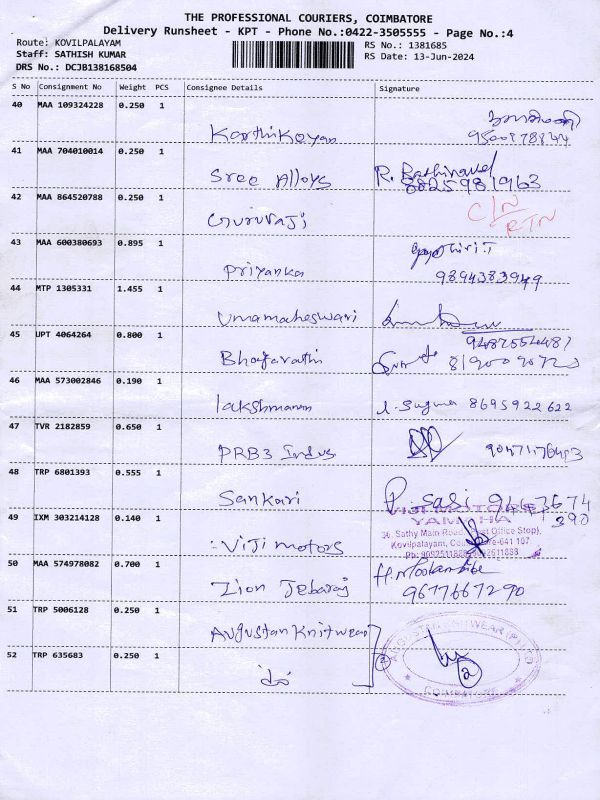 THE PROFESSIONAL COURIERS, COIMBATORE
Delivery Runsheet - KPT - Phone No.:0422-3505555 - Page No.:4
Route: KOVILPALAYAM
Staff: SATHISH KUMAR
DRS No.: DCJB138168504
RS No.: 1381685
RS Date: 13-Jun-2024
S No Consignment No Weight PCS Consignee Details Signature
40 MAA 109324228 0.250 1
Karthikeyan
41 MAA 704010014 0.250 1
Sree Alloys R. Rathinavel
8825981963
42 MAA 864520788 0.250 1
Gururaji C/N
RTN
43 MAA 600380693 0.895 1
Priyanka
9894383949
44 MTP 1305331 1.455 1
Umamaheswari
45 UPT 4064264 0.800 1
9487554487
Bhagarathi
46 MAA 573002846 0.190 1
lakshmanan J. Suguna 8695922622
47 TVR 2182859 0.650 1
PRB3 Indus
48 TRP 6801393 0.555 1
Sankari P. Sasi 9443674
390
49 IXM 303214128 0.140 1
VIJI MOTORS
YAMAHA
36, Sathy Main Road, (Post Office Stop),
Kovilpalayam, 641 107
Viji motors
50 MAA 574978082 0.700 1
Lion Jebaraj
9677667290
51 TRP 5006128 0.250 1
Augustan Knitwear
52 TRP 635683 0.250 1
2